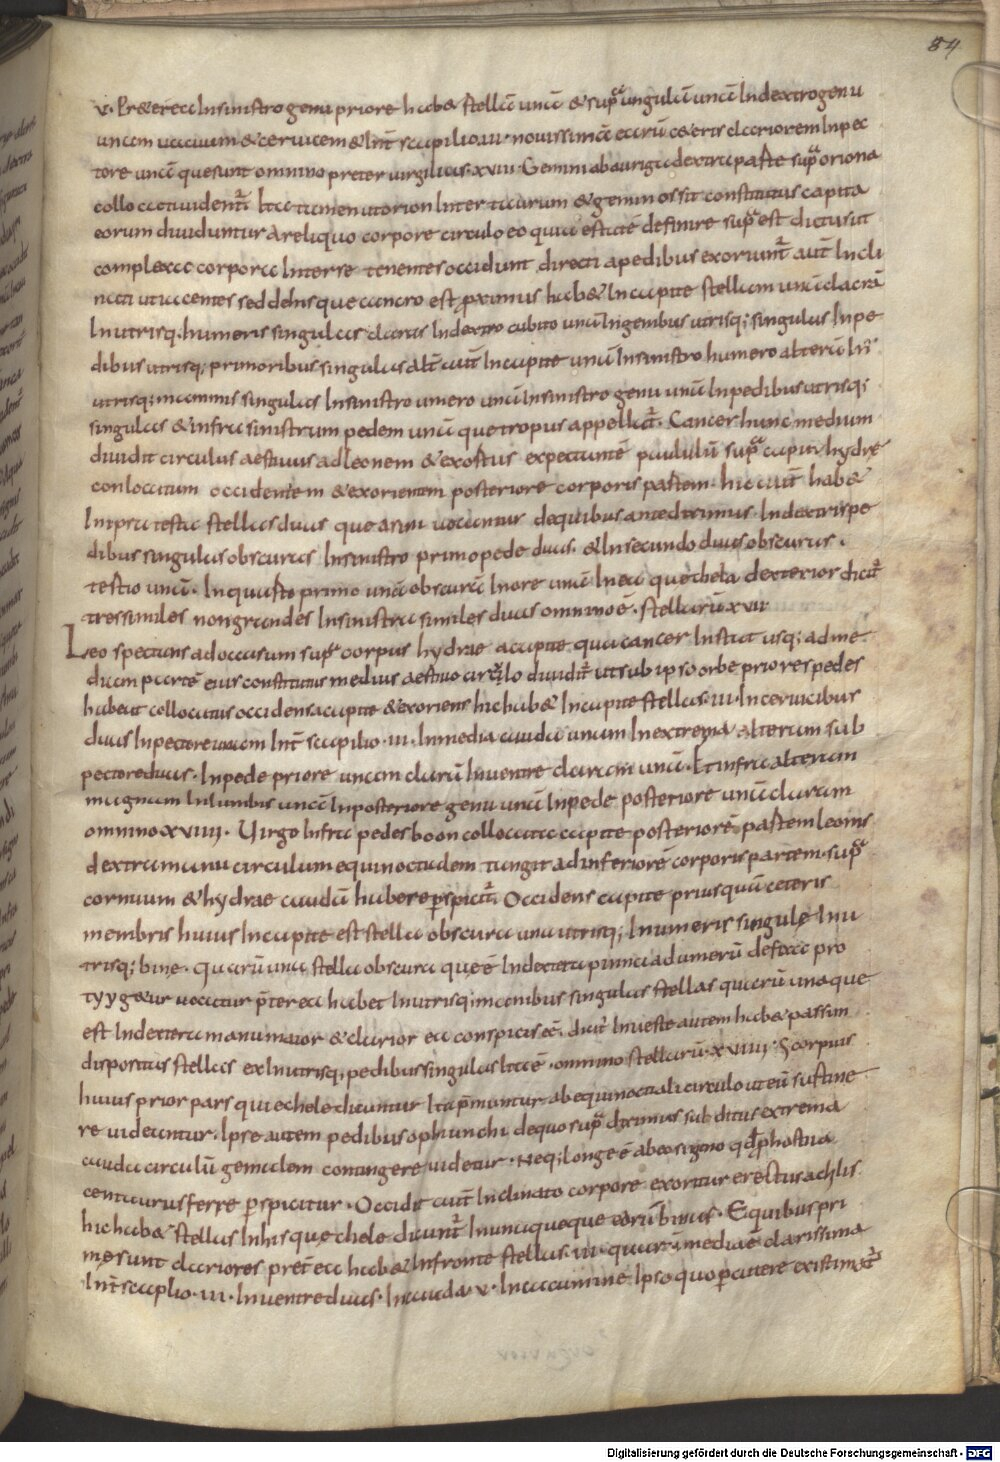 84
v. Pr&erea Insinistro genu priore hab& stellā unā & sup̄ ungulā unā Indextro genu
unam uacuum & ceruicem & Int̄ scapilio.III. nouissimā earū c&eris clariorem Inpec
tore unam que sunt omnino preter uirgilias.xviii. Gemini ab auriga dextra parte sup̄ oriona
collocati uident̄. Ita tamen ut orion Inter taurum & geminos sit constitutus capita
eorum diuiduntur a reliquo corpore circulo eo qui aestatē definire sup̄ est dictus ut
complexa corpora Interse tenentes occidunt directi a pedibus exoriunt̄ aut̄ Incli
nati ut iacentes sed de his que cancro est p̄ximus hab& Incapite stellam unā clarā
Inutrisq. humeris singulas claras Indextro cubito unā Ingenibus utrisq; singulas Inpe
dibus utrisq; primoribus singulas alt̄ aut̄ Incapite unā Insinistro humero alterā In
utrisq; mammis singulas Insinistro umero unā Insinistro genu unā Inpedibus utrisq;
singulas & infra sinistrum pedem unā que tropus appellat̄. Cancer hunc medium
diuidit circulus aestiuus ad leonem & exortus expectantē paululū sup̄ caput hydre
conlocatum occidentem & exorientem posteriore corporis partem. hic aut̄ hab&
Inipsa testa stellas duas que asini uocantur de quibus ante diximus. Indextris pe
dibus singulas obscuras Insinistro primo pede duas. & In secundo duas obscuras.
tertio unā. Inquarto primo unā obscurā Inore unā In ea que chela dexterior dicit̄
tres similes non grandes Insinistra similes duas omnino ē. stellarū xvii
Leo spectans ad occasum sup̄ corpus hydrae a capite qua cancer Instat usq; ad me
diam partē eius constitutus medius aestiuo circulo diuidit̄ ut sub ipso orbe priores pedes
habeat collocatus occidens a capite & exoriens hic hab& Incapite stellas.III. Inceruicibus
duas Inpectore unam Int̄ scapilio.III. Inmedia cauda unam Inextrema alteram sub
pectore duas. Inpede priore unam clarā Inuentre claram unā. Et infra alteram
magnam Inlumbis unā Inposteriore genu unā Inpede posteriore unā claram
omnino xviiii. Uirgo Infra pedes boon collocata capite posteriorē partem leonis
dextra manu circulum equinoctialem tangit ad inferiorē corporis partem. sup̄
coruum & hydrae caudā habere p̄spicit̄. Occidens capite prius quā ceteris
membris huius Incapite est stella obscura una utrisq; Inumeris singulę Inu
trisq; bine. quarū una stella obscura que ē Indextera pinna ad umerū defixa pro
tyyg&ur uocatur p̄terea habet Inutrisq; manibus singulas stellas quarū una que
est Indextera manu maior & clarior ea conspicis eē. dicit̄ Inueste autem hab& passim
dispositas stellas ex Inutrisq; pedibus singulas Ita ē. omnino stellarū. xviiii. Scorpius
huius prior pars qui echele dicuntur Ita p̄muntur ab equinoctiali circulo ut eū sustine
re uideantur. Ipse autem pedibus ophiunchi de quo sup̄ diximus subditus extrema
cauda circulū gemalem contingere uidetur. Neq; longe ē ab eo signo qđ p̄ hostia
centaurus ferre p̄spicitur. Occidit aut̄ Inclinato corpore exoritur erectus achlis
hic hab& stellas Inhis que chele dicunt̄ Inunaquaque earū binas. E quibus pri
me sunt clariores pret̄ ea hab& Infronte stellas.III. quarū media ē clarissima
Int̄ scaplio.III. Inuentre duas. Incauda.v. In ea cumine Ipso quo p̄cutere existimat̄
Digitalisierung gefördert durch die Deutsche Forschungsgemeinschaft - DFG